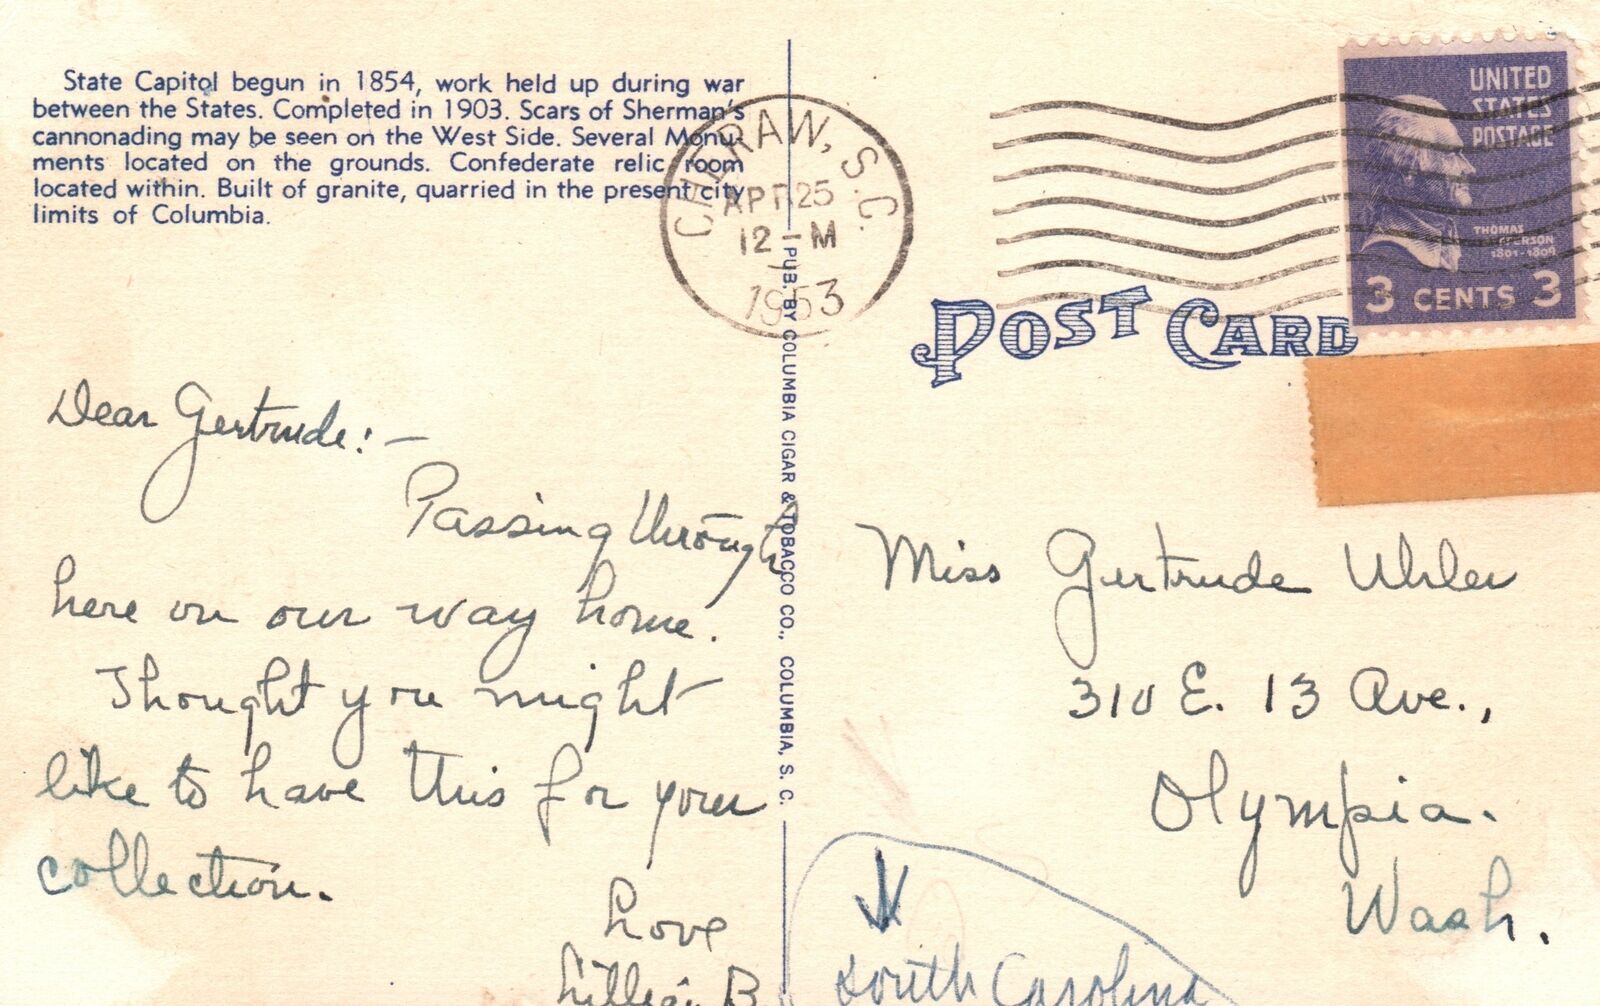 State Capitol begun in 1854, work held up during war
between the States. Completed in 1903. Scars of Sherman's
cannonading may be seen on the West Side. Several Monu-
ments located on the grounds. Confederate relic room
located within. Built of granite, quarried in the present city
limits of Columbia.
CHERAW, S.C.
APR 25
12-M
1953
UNITED
STATES
POSTAGE
THOMAS
JEFFERSON
1801-1809
3 CENTS 3
POST CARD
PUB. BY COLUMBIA CIGAR & TOBACCO CO., COLUMBIA, S. C.
Dear Gertrude:-
Passing through
here on our way home.
Thought you might
like to have this for your
collection.
Love
Lillian B.
Miss Gertrude Uhler
310 E. 13 Ave.,
Olympia.
Wash.
South Carolina